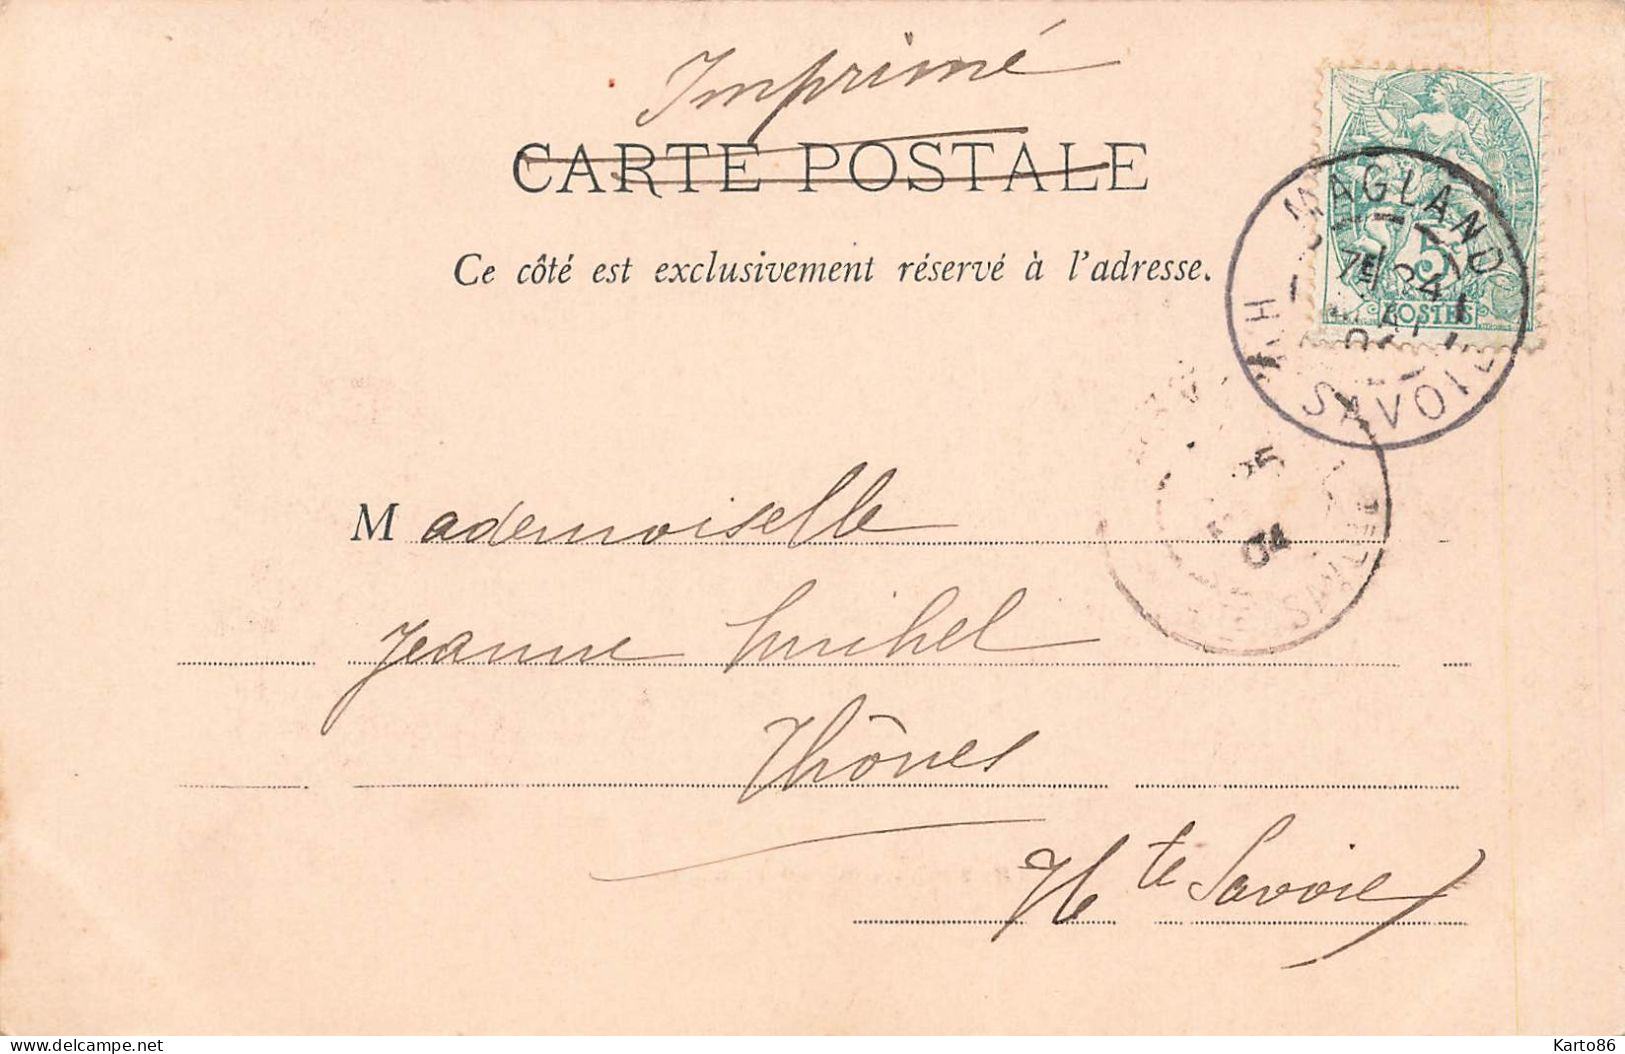 Imprimé
CARTE POSTALE
Ce côté est exclusivement réservé à l'adresse.
MAGLAND
7E 24
MAI
04
HTE SAVOIE
5
POSTES
25
04
SAVOIE
Mademoiselle
Jeanne
Thônes
Hte Savoie
delcampe.net
Karto86